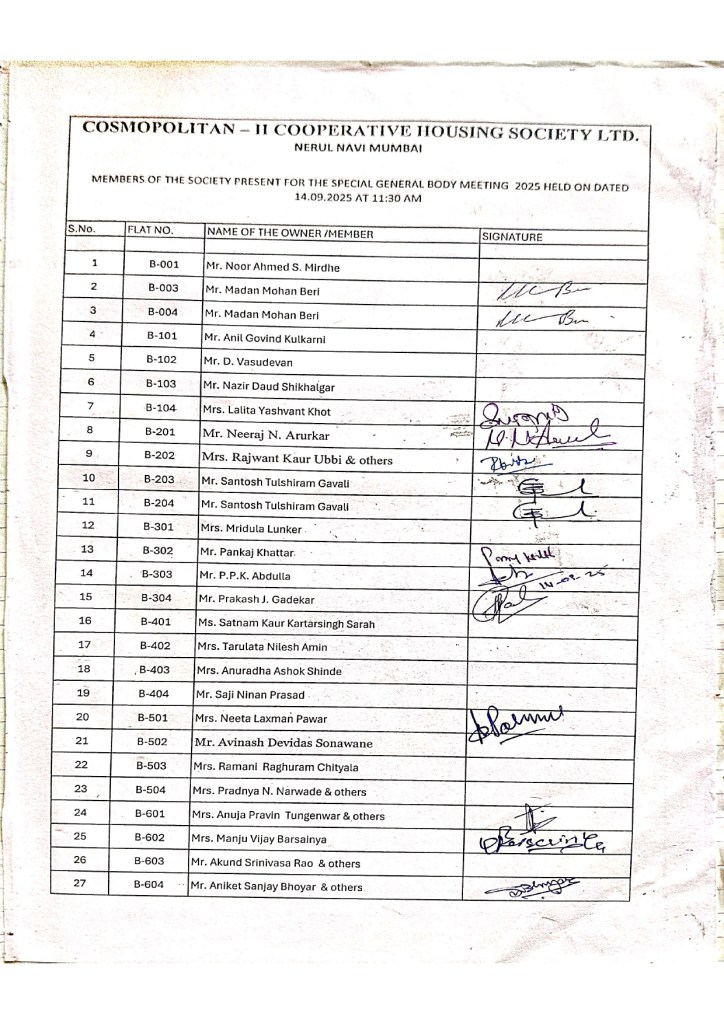 COSMOPOLITAN – II COOPERATIVE HOUSING SOCIETY LTD.
NERUL NAVI MUMBAI
MEMBERS OF THE SOCIETY PRESENT FOR THE SPECIAL GENERAL BODY MEETING 2025 HELD ON DATED
14.09.2025 AT 11:30 AM
S.No. FLAT NO. NAME OF THE OWNER /MEMBER SIGNATURE
1 B-001 Mr. Noor Ahmed S. Mirdhe
2 B-003 Mr. Madan Mohan Beri
3 B-004 Mr. Madan Mohan Beri
4 B-101 Mr. Anil Govind Kulkarni
5 B-102 Mr. D. Vasudevan
6 B-103 Mr. Nazir Daud Shikhalgar
7 B-104 Mrs. Lalita Yashvant Khot
8 B-201 Mr. Neeraj N. Arurkar
9 B-202 Mrs. Rajwant Kaur Ubbi & others
10 B-203 Mr. Santosh Tulshiram Gavali
11 B-204 Mr. Santosh Tulshiram Gavali
12 B-301 Mrs. Mridula Lunker
13 B-302 Mr. Pankaj Khattar
14 B-303 Mr. P.P.K. Abdulla
15 B-304 Mr. Prakash J. Gadekar
16 B-401 Ms. Satnam Kaur Kartarsingh Sarah
17 B-402 Mrs. Tarulata Nilesh Amin
18 B-403 Mrs. Anuradha Ashok Shinde
19 B-404 Mr. Saji Ninan Prasad
20 B-501 Mrs. Neeta Laxman Pawar
21 B-502 Mr. Avinash Devidas Sonawane
22 B-503 Mrs. Ramani Raghuram Chityala
23 B-504 Mrs. Pradnya N. Narwade & others
24 B-601 Mrs. Anuja Pravin Tungenwar & others
25 B-602 Mrs. Manju Vijay Barsainya
26 B-603 Mr. Akund Srinivasa Rao & others
27 B-604 Mr. Aniket Sanjay Bhoyar & others